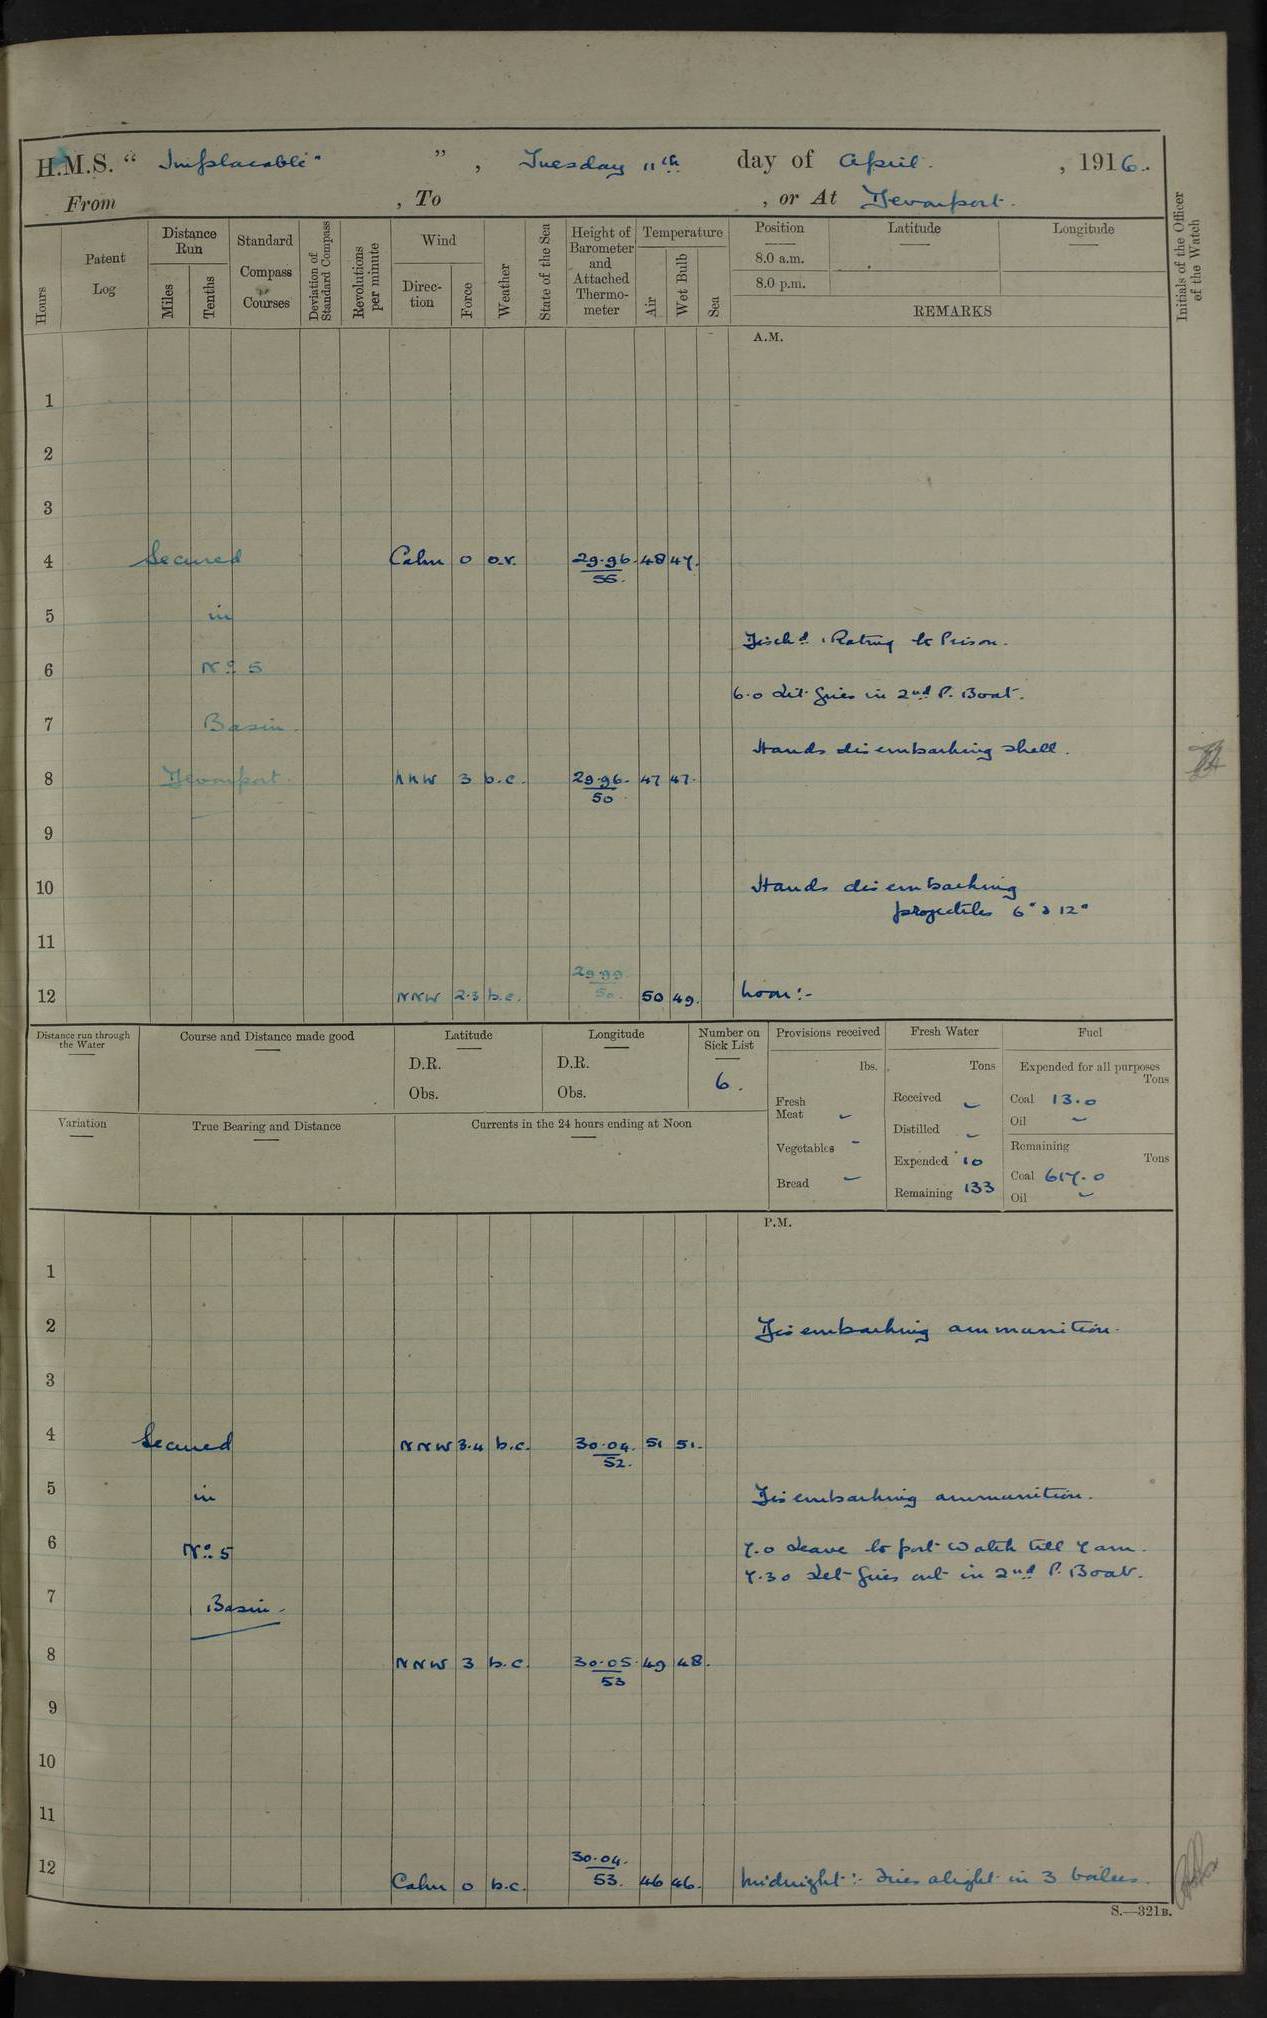 H.M.S. “ Implacable " ” , Tuesday 11th day of April. , 1916.
From , To , or At Devonport.
Hours
Patent Log
Distance Run
Miles
Tenths
Standard Compass Courses
Deviation of Standard Compass
Revolutions per minute
Wind
Direc-tion
Force
Weather
State of the Sea
Height of Barometer and Attached Thermo-meter
Temperature
Air
Wet Bulb
Sea
Position Latitude Longitude
8.0 a.m.
8.0 p.m.
REMARKS
Initials of the Officer of the Watch
A.M.
1
2
3
4 Secured Calm 0 o.r. 29.96. 48 47.
55.
5 in
Disch'd 1 Rating to Prison.
6 No 5
6.0 Lit fires in 2nd P. Boat.
7 Basin.
Hands disembarking shell.
8 Devonport. NNW 3 b.c. 29.96. 47 47.
50
9
10 Hands disembarking
projectiles 6" & 12"
11
29.99
12 NNW 2.3 b.c. 50. 50 49. Noon:-
Distance run through the Water
Course and Distance made good
Latitude
D.R.
Obs.
Longitude
D.R.
Obs.
Number on Sick List
6.
Provisions received
lbs.
Fresh Meat -
Vegetables -
Bread -
Fresh Water
Tons
Received -
Distilled -
Expended 10
Remaining 133
Fuel
Expended for all purposes
Tons
Coal 13.0
Oil -
Remaining
Tons
Coal 617.0
Oil -
Variation
True Bearing and Distance
Currents in the 24 hours ending at Noon
P.M.
1
2 Disembarking ammunition.
3
4 Secured NNW 3.4 b.c. 30.04. 51 51.
52.
5 in Disembarking ammunition.
6 No 5 7.0 Leave to port watch till 7 am.
7.30 Let fires out in 2nd P. Boat.
7 Basin.
8 NNW 3 b.c. 30.05. 49 48.
53
9
10
11
30.04.
12 Calm 0 b.c. 53. 46 46. Midnight:- Fires alight in 3 boilers.
S.—321B.